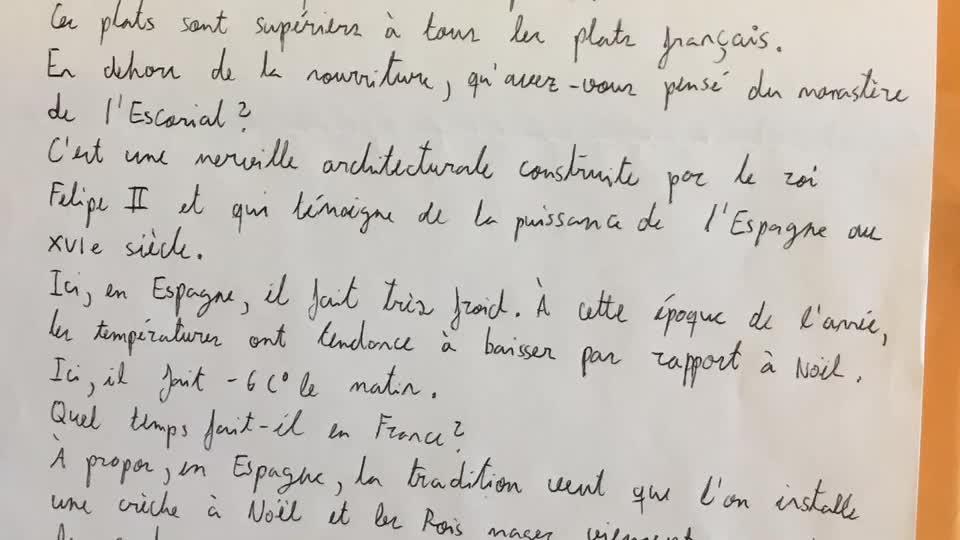 Ces plats sont supériers à tous les plats français.
En dehors de la nourriture, qu'avez-vous pensé du monastère
de l'Escorial ?
C'est une merville architecturale construite par le roi
Felipe II et qui témoigne de la puissance de l'Espagne au
XVIe siècle.
Ici, en Espagne, il fait très froid. À cette époque de l'année,
les températures ont tendance à baisser par rapport à Noël.
Ici, il fait -6 C° le matin.
Quel temps fait-il en France ?
À propos, en Espagne, la tradition veut que l'on installe
une crèche à Noël et les Rois mages viennent